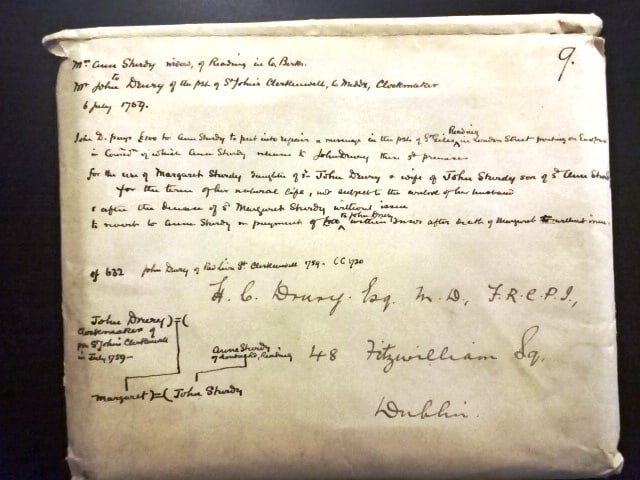 9.
Mrs Ann Sturdy widow, of Reading in Co. Berks.
to
Mr John Drury of the psh of St John's Clerkenwell, Co. Middx, Clockmaker
6 July 1759.
John D. pays £100 to Ann Sturdy to put into repair a messuage in the psh of St Giles Reading in London Street fronting on East
in Consid of which Ann Sturdy releases to John Drury these sd premises
for the use of Margaret Sturdy daughter of sd John Drury & wife of John Sturdy son of sd Ann Sturdy
for the term of her natural life, not subject to the control of her husband
& after the decease of sd Margaret Sturdy without issue
to revert to Ann Sturdy on payment of to John Drury within after death of Margaret without issue.
cf 632 John Drury of Red Lion St. Clerkenwell 1759 - CC 1720
H. C. Drury. Esq. M.D., F.R.C.P.I.,
48 Fitzwilliam Sq.
Dublin.
John Drury)=(
Clockmaker of
psh St John's Clerkenwell
in July 1759-
Anne Sturdy
of London St, Reading
Margaret)=(John Sturdy